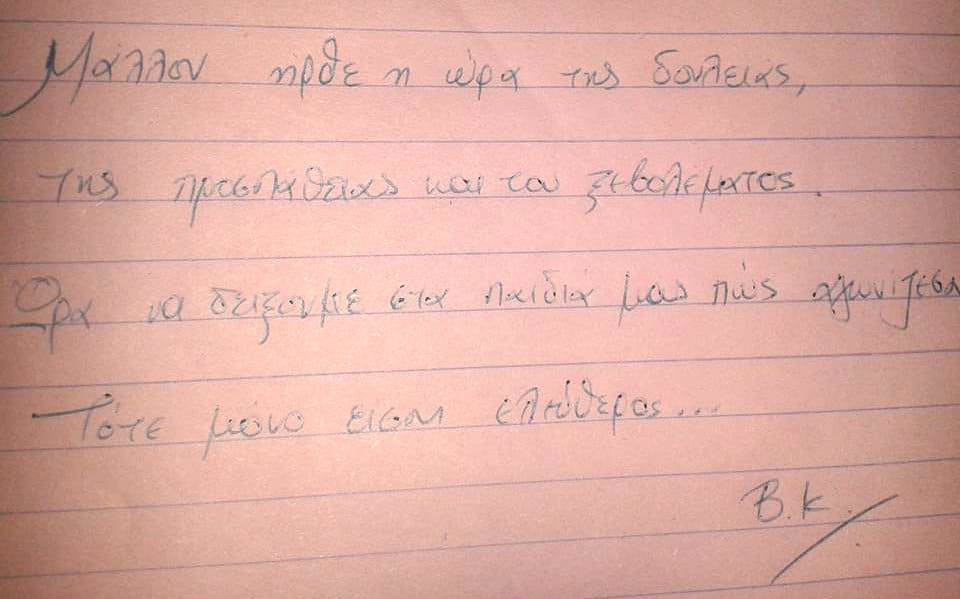 Μάλλον ήρθε η ώρα της δουλειάς,
της προσπάθειας και του ξεβολέματος.
Ώρα να δείξουμε στα παιδιά μας πώς αγωνίζεσαι
Τότε μόνο είσαι ελεύθερος...
Β.Κ.